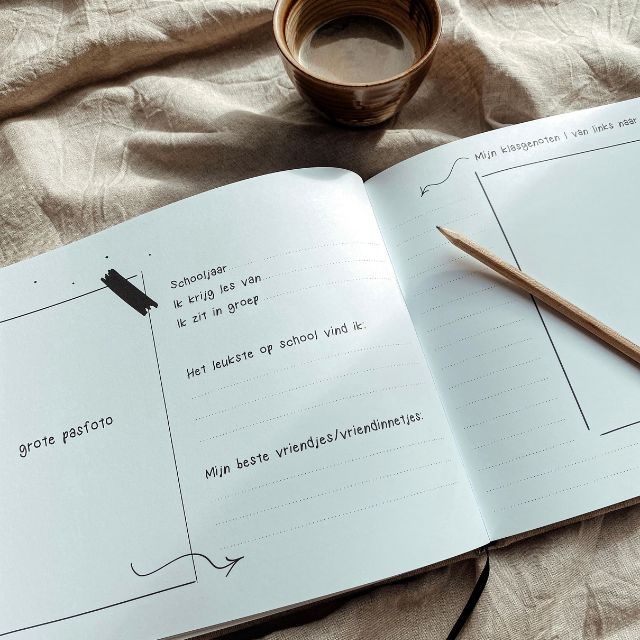 grote pasfoto
Schooljaar
Ik krijg les van
Ik zit in groep
Het leukste op school vind ik:
Mijn beste vriendjes/vriendinnetjes:
Mijn klasgenoten | van links naar